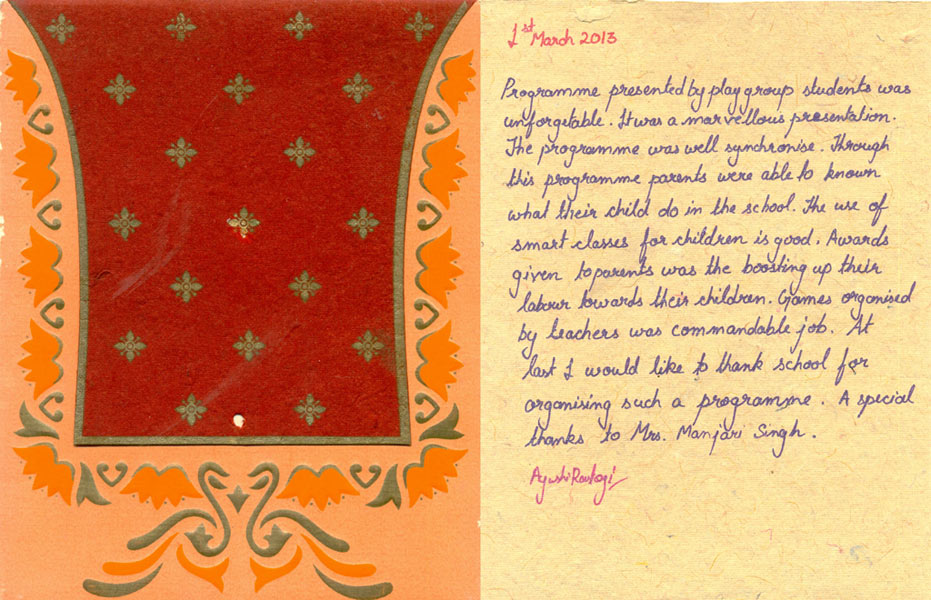 1st March 2013
Programme presented by play group students was
unforgetable. It was a marvellous presentation.
The programme was well synchronise. Through
this programme parents were able to known
what their child do in the school. The use of
smart classes for children is good. Awards
given to parents was the boosting up their
labour towards their children. Games organised
by teachers was commandable job. At
last I would like to thank school for
organising such a programme. A special
thanks to Mrs. Manjari Singh.
Ayushi Rastogi